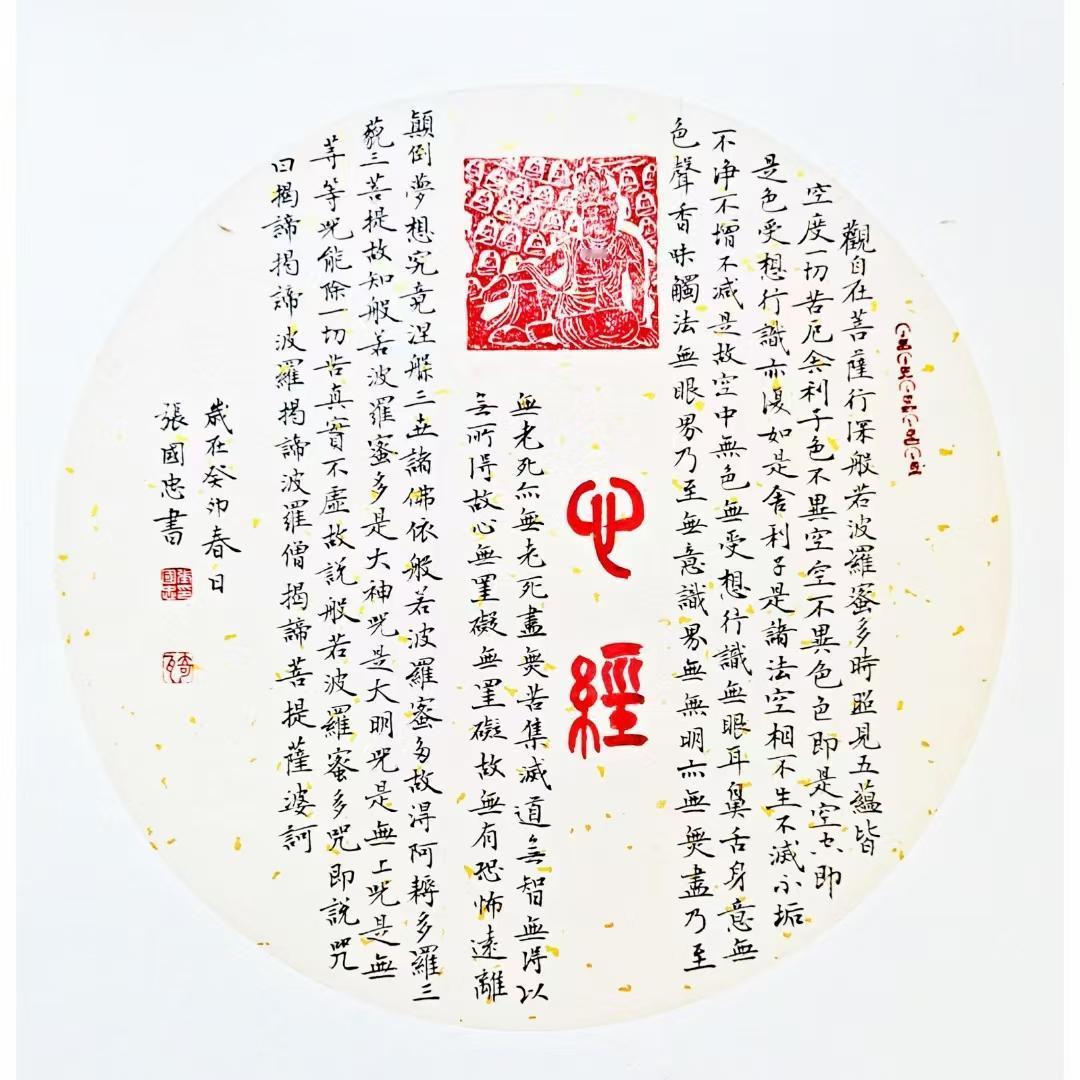 觀自在菩薩行深般若波羅蜜多時照見五蘊皆
空度一切苦厄舍利子色不異空空不異色色即是空〻即
是色受想行識亦復如是舍利子是諸法空相不生不滅不垢
不净不增不减是故空中無色無受想行識無眼耳鼻舌身意無
色聲香味觸法無眼界乃至無意識界無無明亦無無盡乃至
心經
無老死亦無老死盡無苦集滅道無智無得以
無所得故心無罣礙無罣礙故無有恐怖遠離
顛倒夢想究竟涅槃三世諸佛依般若波羅蜜多故得阿耨多羅三
藐三菩提故知般若波羅蜜多是大神咒是大明咒是無上咒是無
等等咒能除一切苦真實不虛故說般若波羅蜜多咒即說咒
曰揭諦揭諦波羅揭諦波羅僧揭諦菩提薩婆訶
歲在癸卯春日
張國忠書